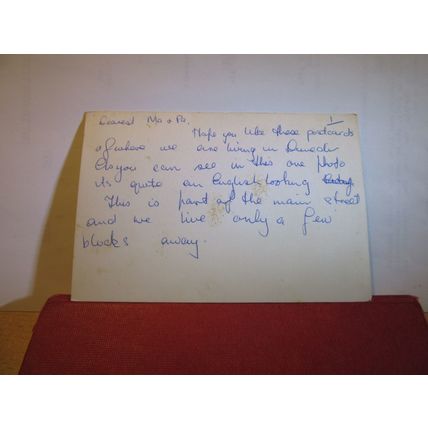 Dearest Ma & Pa. 1
Hope you like these postcards
of where we are living in
As you can see in this one photo
its quite an English looking
This is part of the main street
and we live only a few
blocks away.